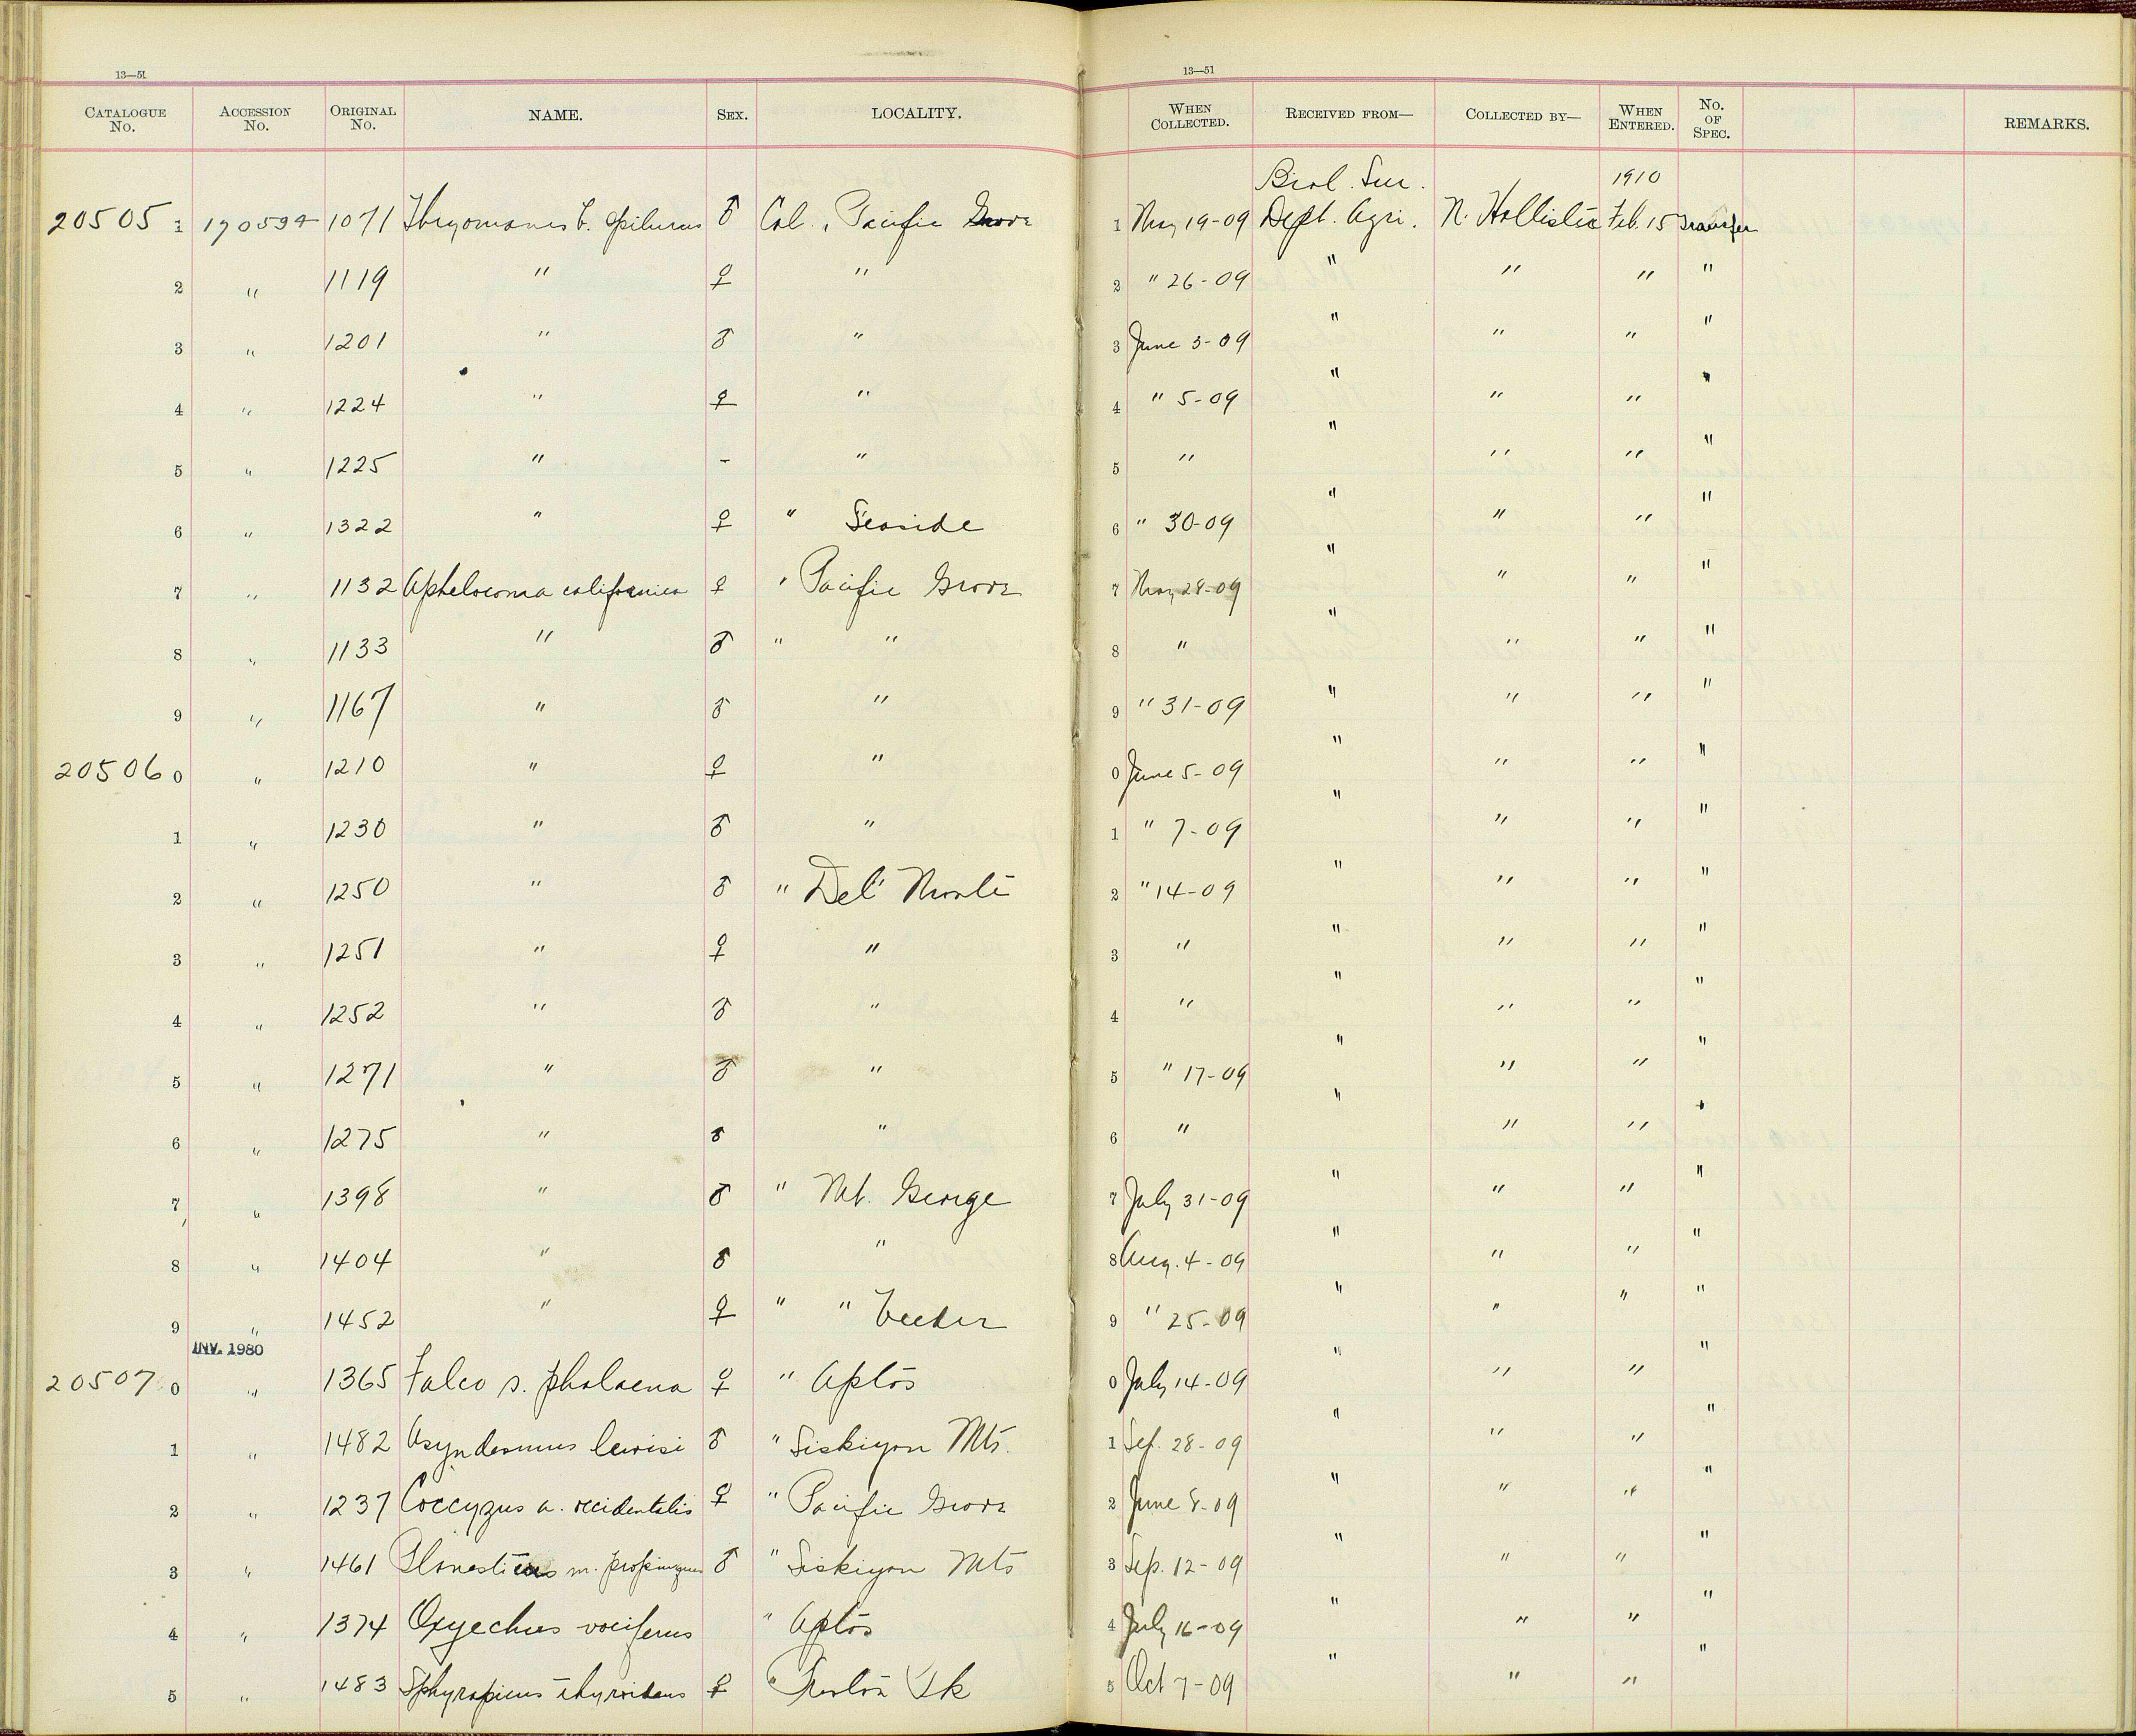 13—51 13—51
CATALOGUE No. ACCESSION No. ORIGINAL No. NAME. SEX. LOCALITY. WHEN COLLECTED. RECEIVED FROM— COLLECTED BY— WHEN ENTERED. No. OF SPEC. REMARKS.
Biol. Sur. 1910
20505 1 170594 1071 Thryomanes b. spilurus ♂ Cal., Pacific Grove 1 May 19-09 Dept. Agri. N. Hollister Feb. 15 Transfer
2 " 1119 " ♀ " 2 " 26-09 " " " "
3 " 1201 " ♂ " 3 June 3-09 " " " "
4 " 1224 " ♀ " 4 " 5-09 " " " "
5 " 1225 " - " 5 " " " " "
6 " 1322 " ♀ " Seaside 6 " 30-09 " " " "
7 " 1132 Aphelocoma californica ♀ " Pacific Grove 7 May 28-09 " " " "
8 " 1133 " ♂ " " 8 " " " " "
9 " 1167 " ♂ " 9 " 31-09 " " " "
20506 0 " 1210 " ♀ " 0 June 5-09 " " " "
1 " 1230 " ♂ " 1 " 7-09 " " " "
2 " 1250 " ♂ " Del Monte 2 " 14-09 " " " "
3 " 1251 " ♀ " 3 " " " " "
4 " 1252 " ♂ " 4 " " " " "
5 " 1271 " ♂ " 5 " 17-09 " " " "
6 " 1275 " ♂ " 6 " " " " "
7 " 1398 " ♂ " Mt. George 7 July 31-09 " " " "
8 " 1404 " ♂ " 8 Aug. 4-09 " " " "
9 " 1452 " ♀ " " Veeder 9 " 25-09 " " " "
INV. 1980
20507 0 " 1365 Falco s. phalaena ♀ " Aptos 0 July 14-09 " " " "
1 " 1482 Asyndesmus lewisi ♂ " Siskiyou Mts. 1 Sep. 28-09 " " " "
2 " 1237 Coccyzus a. occidentalis ♀ " Pacific Grove 2 June 8-09 " " " "
3 " 1461 Planesticus m. propinquus ♂ " Siskiyou Mts 3 Sep. 12-09 " " " "
4 " 1374 Oxyechus vociferus " Aptos 4 July 16-09 " " " "
5 " 1483 Sphyrapicus thyroideus ♀ " Pk 5 Oct 7-09 " " " "